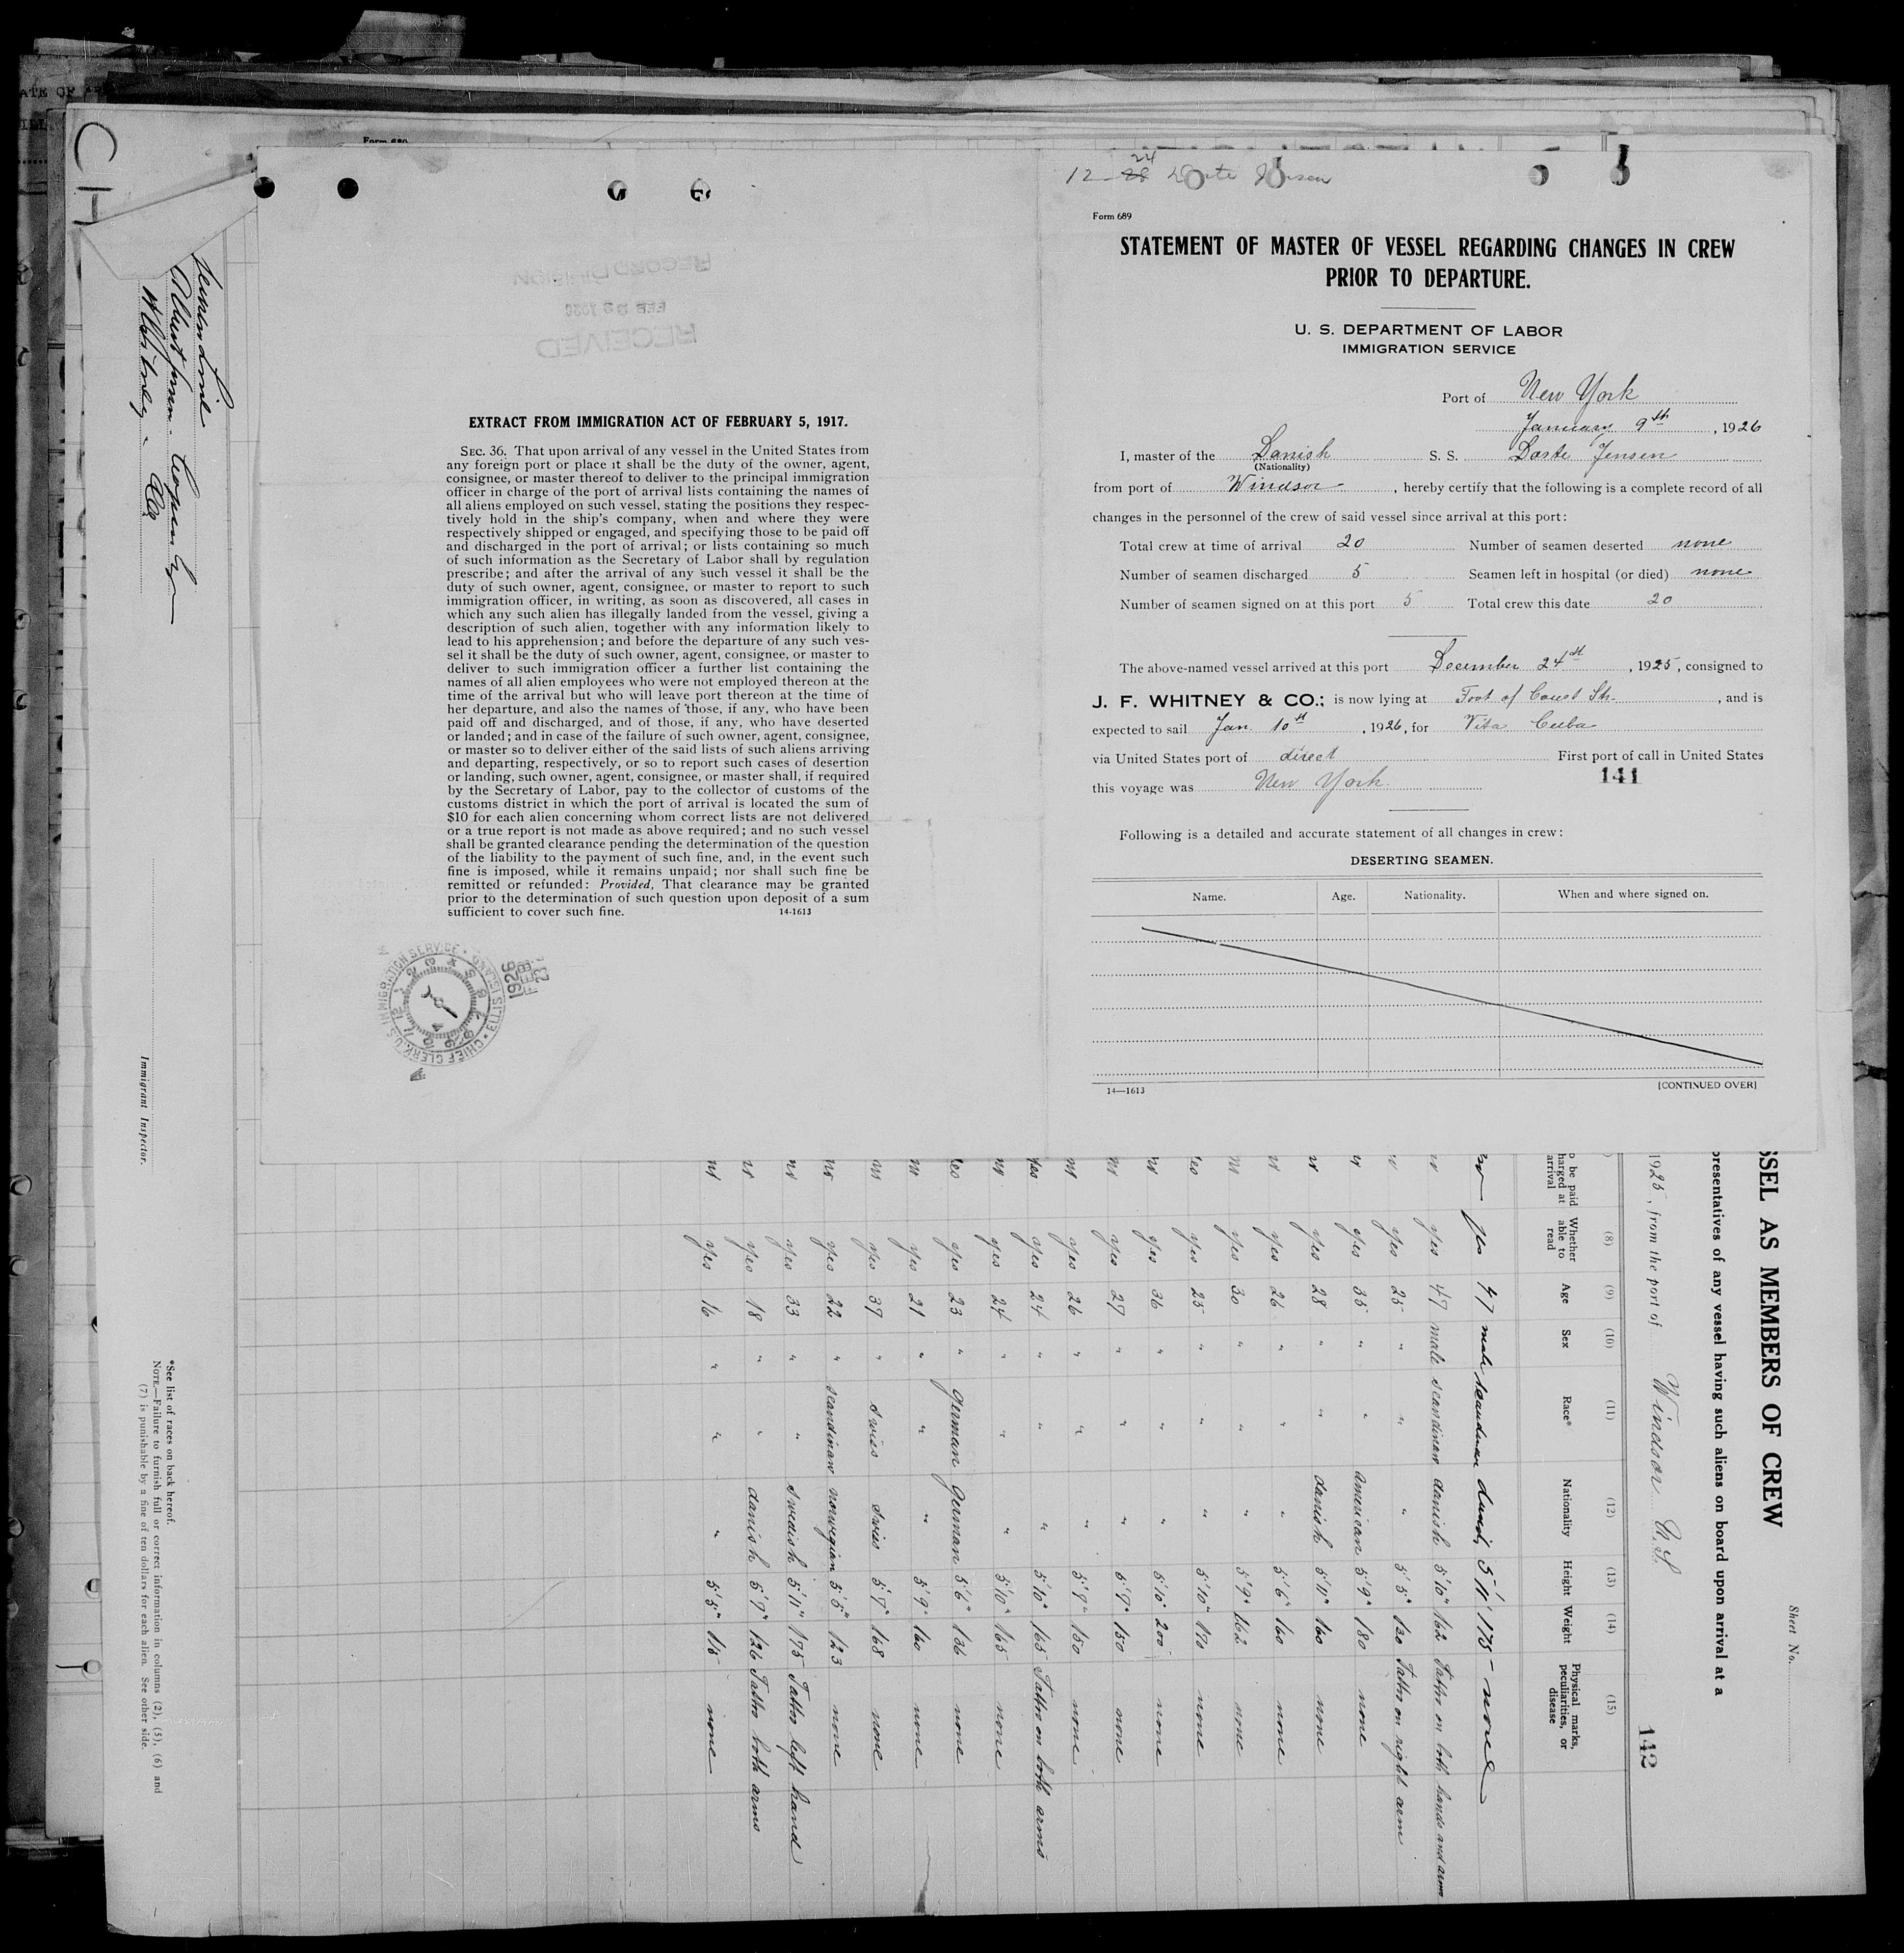 12-28 24 Dorte Jensen
Form 689
STATEMENT OF MASTER OF VESSEL REGARDING CHANGES IN CREW
PRIOR TO DEPARTURE.
U. S. DEPARTMENT OF LABOR
IMMIGRATION SERVICE
Port of New York
January 9th, 1926
I, master of the Danish S. S. Dorte Jensen
(Nationality)
from port of Windsor, hereby certify that the following is a complete record of all
changes in the personnel of the crew of said vessel since arrival at this port:
Total crew at time of arrival 20 Number of seamen deserted none
Number of seamen discharged 5 Seamen left in hospital (or died) none
Number of seamen signed on at this port 5 Total crew this date 20
The above-named vessel arrived at this port December 24th, 1925, consigned to
J. F. WHITNEY & CO.; is now lying at Foot of Court Str., and is
expected to sail Jan. 10th, 1926, for Vita Cuba
via United States port of direct First port of call in United States
this voyage was New York 141
Following is a detailed and accurate statement of all changes in crew:
DESERTING SEAMEN.
Name. Age. Nationality. When and where signed on.
14—1613 [CONTINUED OVER]
RECORD DIVISION
FEB 23 1926
RECEIVED
EXTRACT FROM IMMIGRATION ACT OF FEBRUARY 5, 1917.
SEC. 36. That upon arrival of any vessel in the United States from
any foreign port or place it shall be the duty of the owner, agent,
consignee, or master thereof to deliver to the principal immigration
officer in charge of the port of arrival lists containing the names of
all aliens employed on such vessel, stating the positions they respec-
tively hold in the ship's company, when and where they were
respectively shipped or engaged, and specifying those to be paid off
and discharged in the port of arrival; or lists containing so much
of such information as the Secretary of Labor shall by regulation
prescribe; and after the arrival of any such vessel it shall be the
duty of such owner, agent, consignee, or master to report to such
immigration officer, in writing, as soon as discovered, all cases in
which any such alien has illegally landed from the vessel, giving a
description of such alien, together with any information likely to
lead to his apprehension; and before the departure of any such ves-
sel it shall be the duty of such owner, agent, consignee, or master to
deliver to such immigration officer a further list containing the
names of all alien employees who were not employed thereon at the
time of the arrival but who will leave port thereon at the time of
her departure, and also the names of those, if any, who have been
paid off and discharged, and of those, if any, who have deserted
or landed; and in case of the failure of such owner, agent, consignee,
or master so to deliver either of the said lists of such aliens arriving
and departing, respectively, or so to report such cases of desertion
or landing, such owner, agent, consignee, or master shall, if required
by the Secretary of Labor, pay to the collector of customs of the
customs district in which the port of arrival is located the sum of
$10 for each alien concerning whom correct lists are not delivered
or a true report is not made as above required; and no such vessel
shall be granted clearance pending the determination of the question
of the liability to the payment of such fine, and, in the event such
fine is imposed, while it remains unpaid; nor shall such fine be
remitted or refunded: Provided, That clearance may be granted
prior to the determination of such question upon deposit of a sum
sufficient to cover such fine. 14-1613
CHIEF CLERK U.S. IMMIGRATION SERVICE · ELLIS ISLAND
1926 FEB 23
Sheet No.
SSEL AS MEMBERS OF CREW
presentatives of any vessel having such aliens on board upon arrival at a
1925, from the port of Windsor N.S. 142
(8) (9) (10) (11) (12) (13) (14) (15)
o be paid
harged at
arrival Whether
able to
read Age Sex Race* Nationality Height Weight Physical marks,
peculiarities, or
disease
yes 47 male scandinav danish 5'11" 175 none
yes 47 male scandinav danish 5'10" 162 Tattoo on both hands and arms
yes 25 " " " 5'5" 130 Tattoo on right arm
yes 35 " " american 5'9" 180 none
yes 28 " " danish 5'11" 160 none
yes 26 " " " 5'6" 160 none
yes 30 " " " 5'9" 162 none
yes 25 " " " 5'10" 170 none
yes 36 " " " 5'10" 200 none
yes 27 " " " 5'9" 150 none
yes 26 " " " 5'9" 150 none
yes 24 " " " 5'10" 165 Tattoo on both arms
yes 24 " " " 5'10" 165 none
yes 23 " german german 5'6" 136 none
yes 21 " " " 5'9" 160 none
yes 37 " swiss swiss 5'7" 168 none
yes 22 " scandinav norwegian 5'5" 123 none
yes 33 " " swedish 5'11" 175 Tattoo left hand
yes 18 " " danish 5'7" 126 Tattoo both arms
yes 16 " " " 5'5" 115 none
Immigrant Inspector.
*See list of races on back hereof.
NOTE.—Failure to furnish full or correct information in columns (2), (5), (6) and
(7) is punishable by a fine of ten dollars for each alien. See other side.
Form 689